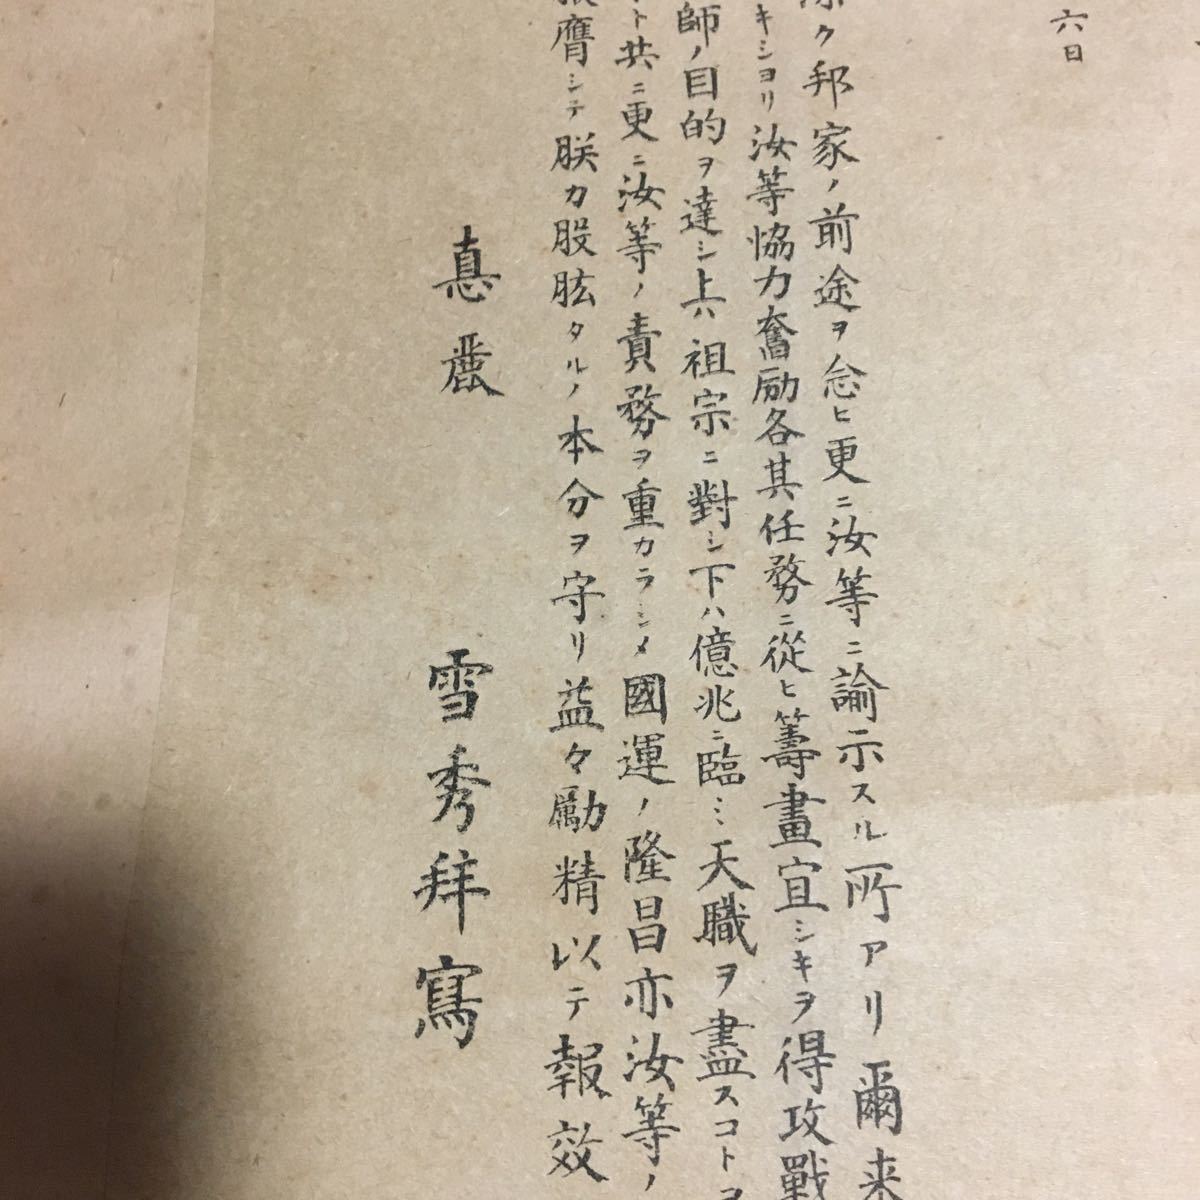 六日
ク邦家ノ前途ヲ念ヒ更ニ汝等ニ諭示スル所アリ爾来
キシヨリ汝等協力奮励各其任務ニ從ヒ籌畫宜シキヲ得攻戰
師ノ目的ヲ達シ上ハ祖宗ニ對シ下ハ億兆ニ臨ミ天職ヲ盡スコトヲ
ト共ニ更ニ汝等ノ責務ヲ重カラシメ國運ノ隆昌亦汝等ノ
膺シテ朕カ股肱タルノ本分ヲ守リ益々勵精以テ報效
雪秀拜寫